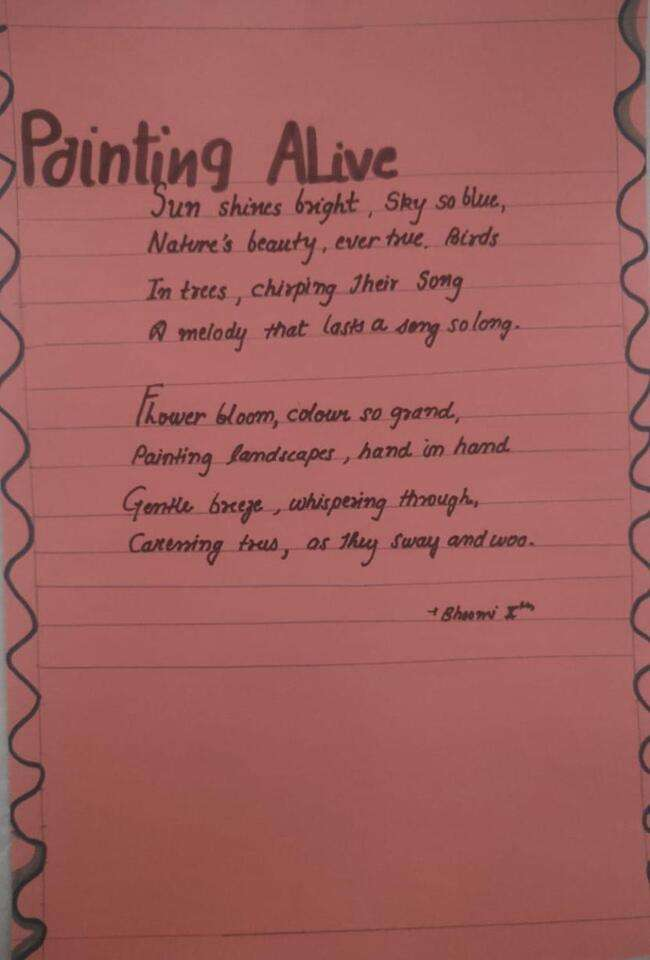 Painting ALive
Sun shines bright, Sky so blue,
Nature's beauty, ever true. Birds
In trees, chirping Their Song
A melody that lasts a song so long.
Flower bloom, colour so grand,
Painting landscapes, hand in hand
Gentle breeze, whispering through,
Caressing trees, as They sway and woo.
→ Bhoomi X<sup>th</sup>